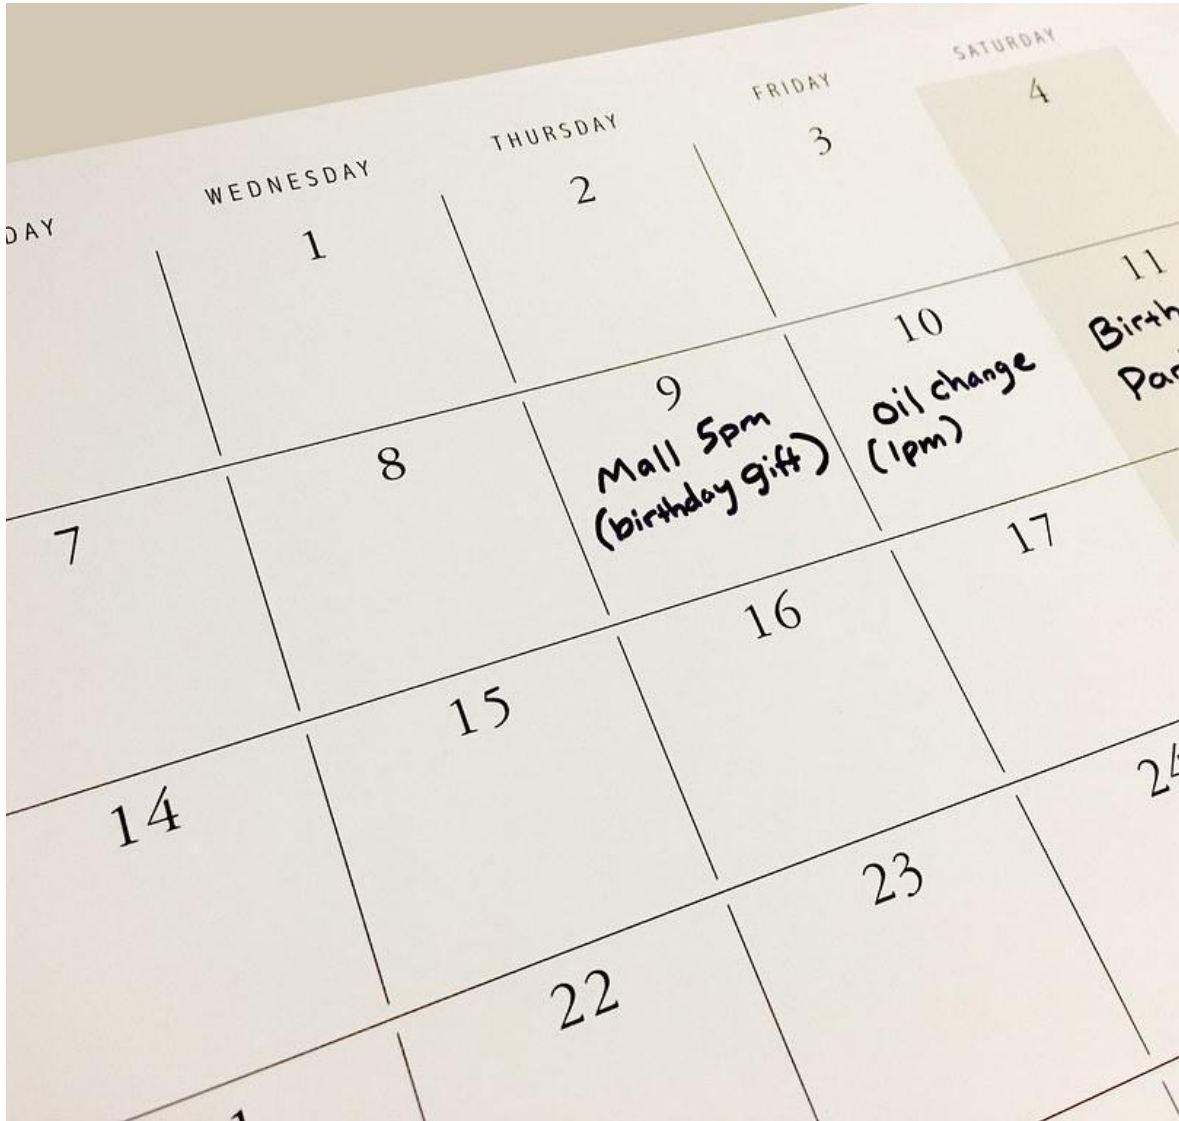 DAY WEDNESDAY THURSDAY FRIDAY SATURDAY
1 2 3 4
7 8 9 10 11
Mall 5pm
(birthday gift)
oil change
(1pm)
Birth
Par
14 15 16 17
22 23 24